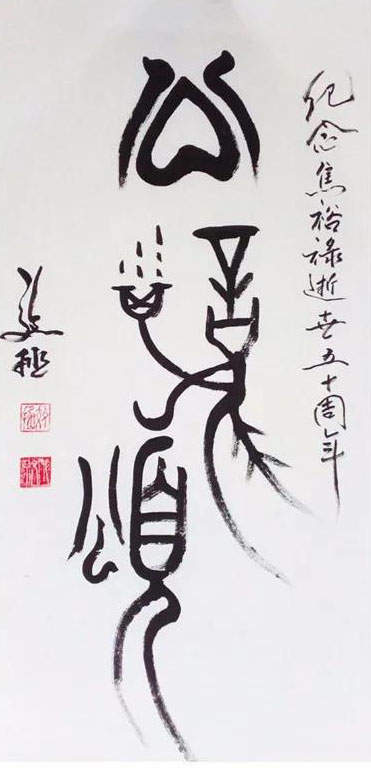 纪念焦裕禄逝世五十周年
公
僕
頌